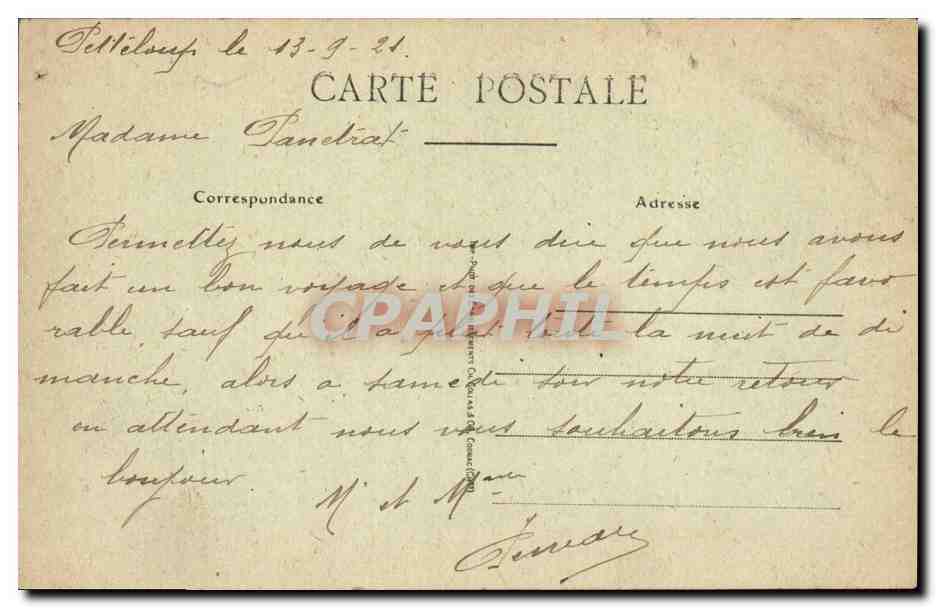 le 13-9-21.
CARTE POSTALE
Madame Panetrat
Correspondance
Adresse
Permettez nous de vous dire que nous avons
fait un bon voyage et que le temps est favo
rable, sauf qu'il a plut toute la nuit de di
manche, alors a samedi soir notre retour
en attendant nous vous souhaitons bien le
bonjour.
Mr et Mme
CPAPHIL
COGNAC